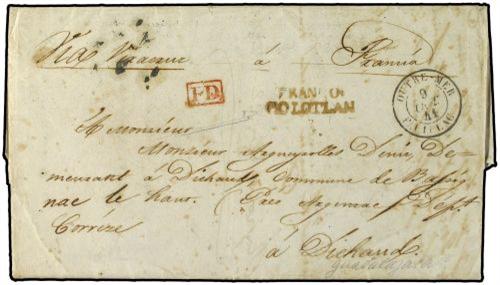 Via Veracruz à Francia
P.D.
FRANCO
COLOTLAN
OUTRE-MER
9
44
PAUILLAC
A Monsieur
Monsieur Denis, De-
meurant à Dichaud, Commune de
nac le haut. (Près Argentac) Dept.
Corrèze
à Dichaud.
Guadalajara